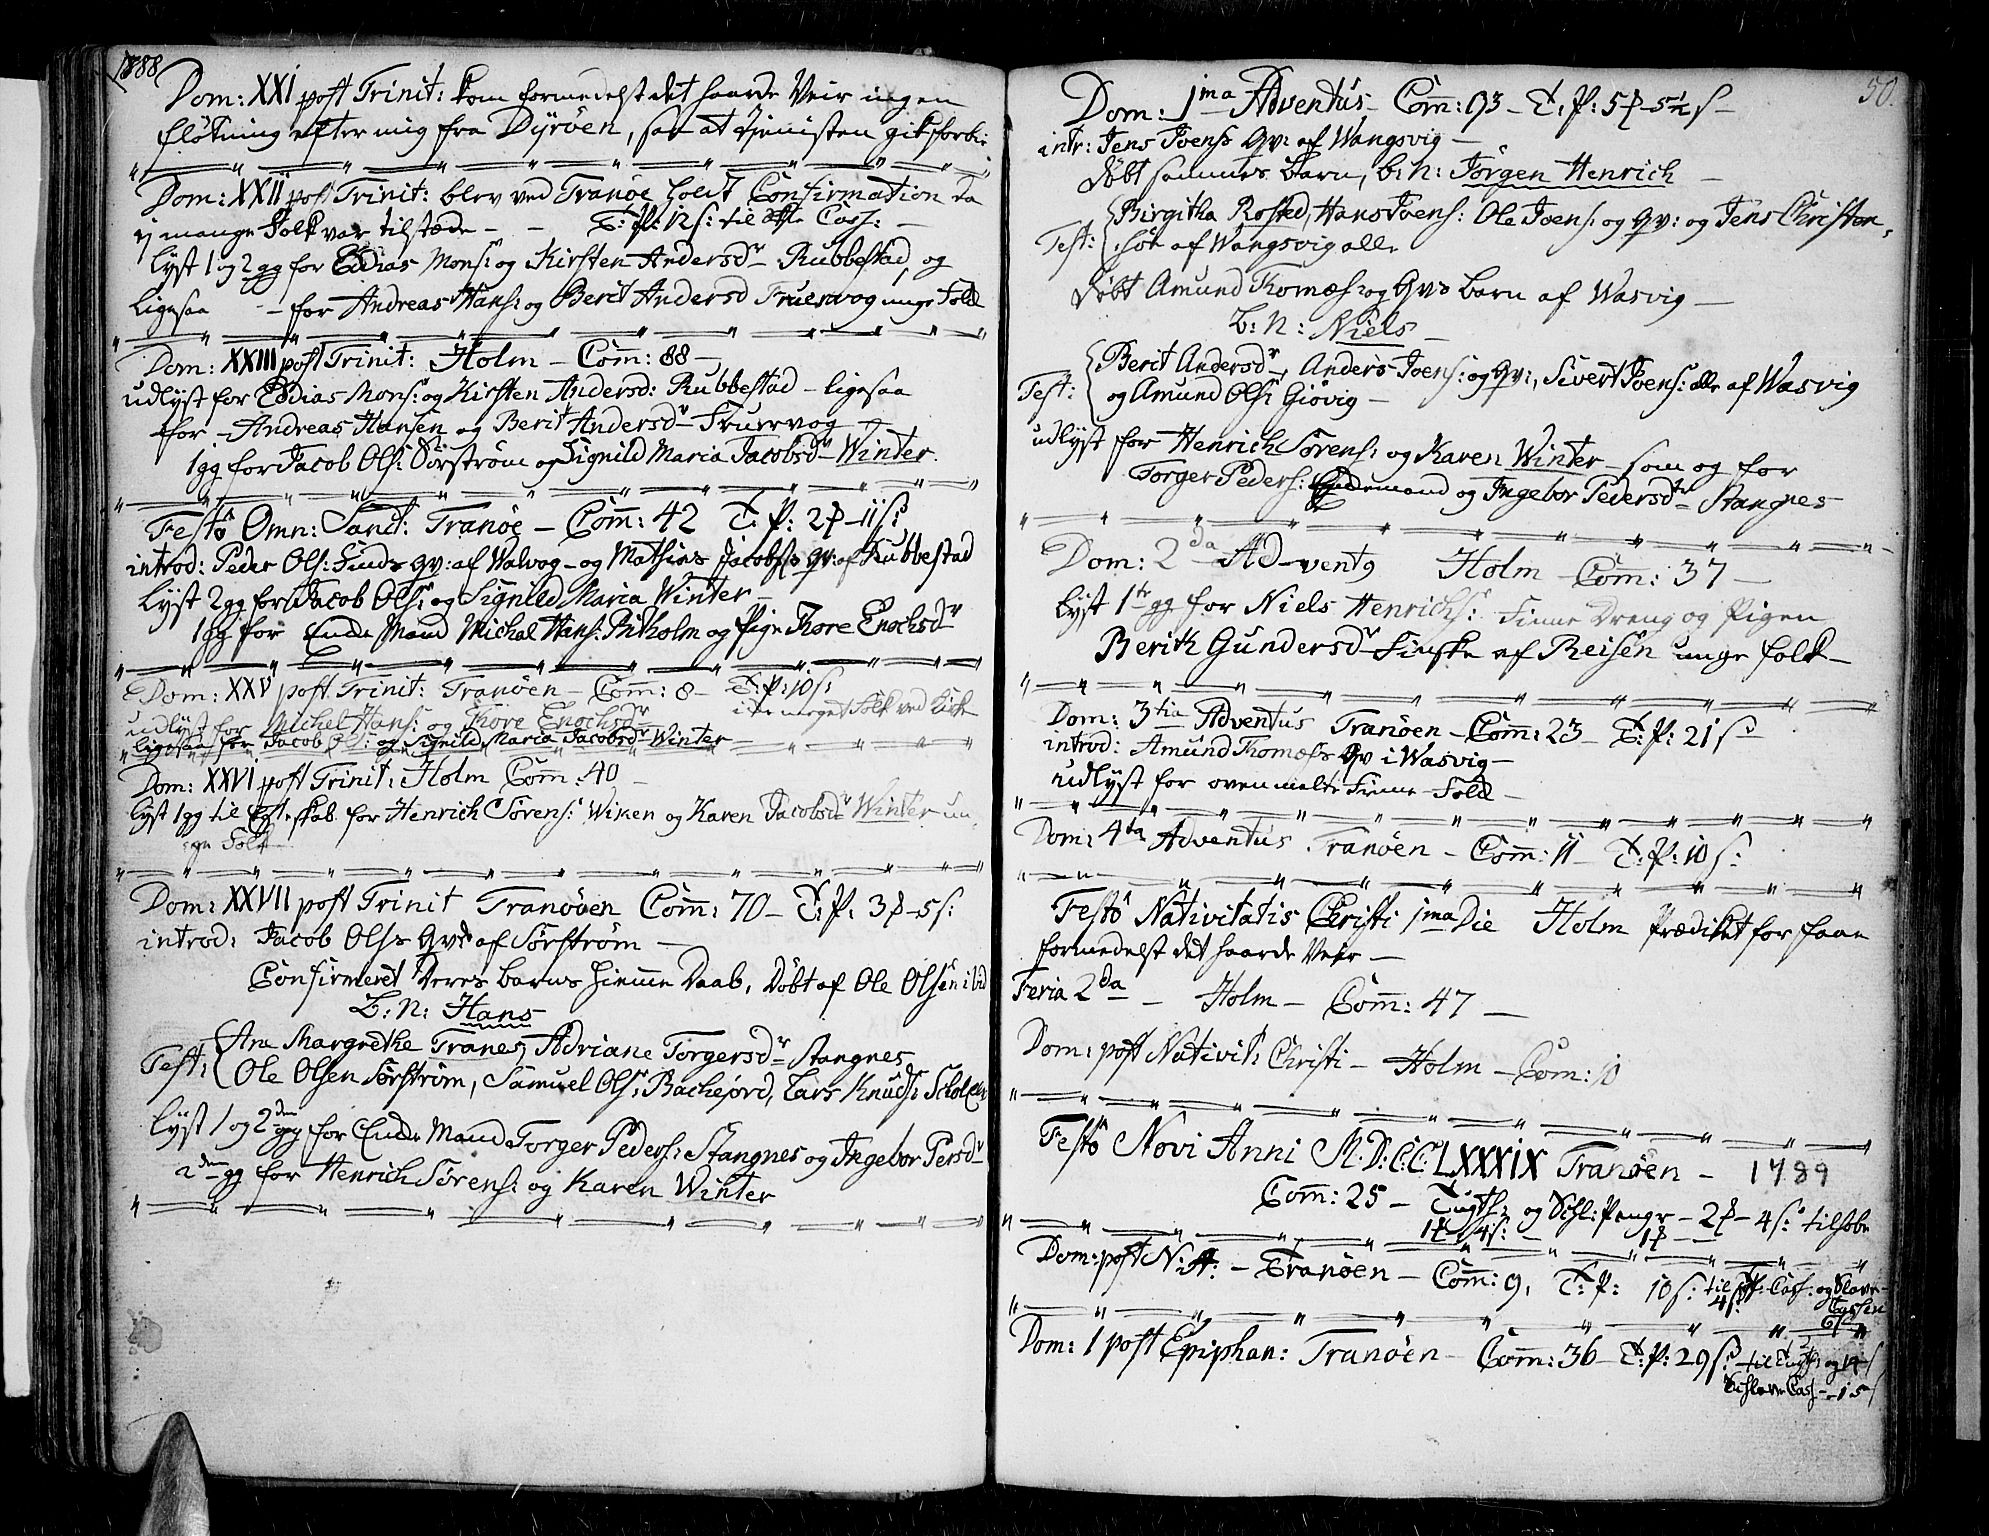 1788
Dom: XXI post Trinit: kom formedelst det haarde Veir ingen
fløtning efter mig fra Dÿröen, saa at tienisten gik forbi
Dom: XXII post Trinit: blev ved Tranöe holdt Confirmation da
ej mange Folk var tilstæde - - T: P: 12 s: til Cass:
Lyst 1 og 2 gg for Mons: og Kirsten Andersdr Rubbestad, og
ligesaa - for Andreas Hans: og Berit Andersd unge Folk
Dom: XXIII post Trinit: Holm - Com: 88 -
udlyst for Mons: og Kirsten Andersd: Rubbestad - ligesaa
for - Andreas Hansen og Berit Andersdr
1 gg for Jacob Ols: Sörström og Signild Maria Jacobsdr Winter.
Festo Omn: Sanct: Tranöe - Com: 42 T: P: 2 - 11 s:
introd: Peder Ols: Finds qv: af Walvog - og Mathias Jacobs: qv: af Rubbestad
Lyst 2 gg for Jacob Ols: og Signild Maria Winter -
1 gg for Encke Mand Michal Hans: og Pige Thore Enochsdr
Dom: XXV post Trinit: Tranöen - Com: 8 - T: P: 10 s:
udlyst for Michel Hans: og Thore Enochsdr i meget Folk ved Kirke
ligesaa for Jacob Ols: og Signild Maria Jacobsdr Winter
Dom: XXVI post Trinit: Holm Com: 40 -
Lyst 1 gg til Egteskab for Henrich Sörens: Wiken og Karen Jacobsdr Winter un,
ge Folk
Dom: XXVII post Trinit Tranöen Com: 70 - T: P: 3 - 5 s:
introd: Jacob Ols qv: af Sörström -
Confirmeret Deres barns hiemme Daab, Döbt af Ole Olsen ibid
b: n: Hans
Test: Ane Margrethe Tranes, Adriane Torgersdr Stangnes
Ole Olsen Sörström, Samuel Ols: Backejord, Lars Knuds:
Lyst 1 og 2den gg for Encke Mand Torger Peders: Stangnes og Ingebor Persdr
2den gg for Henrich Sörens: og Karen Winter
50.
Dom: 1ma Adventus - Com: 93 - T: P: 5 - 5½ s -
intr: Jens Joens qv: af Wangsvig -
Döbt sammes barn, b: n: Jörgen Henrich -
Test: Birgitha Rosted, Hans Joens: Ole Joens: og qv: og Jens Christen,
sön af Wangsvig alle
Döbt Amund Thomæs: og qvs barn af Wasvig -
b: n: Niels
Test: Berit Andersdr, Anders Joens: og qv:, Sivert Joens: alle af Wasvig
og Amund Ols: Giövig -
udlyst for Henrich Sörens: og Karen Winter - som og for
Torger Peders: Enckemand og Ingebor Pedersdtr Stangnes
Dom: 2da Adventg Holm - Com: 37 -
Lyst 1te gg for Niels Henrichs: Finne Dreng og Pigen
Berith Gundersdr Finske af Reisen unge folk -
Dom: 3tia Adventus Tranöen - Com: 23 - T: P: 21 s
introd: Amund Thomæs qv i Wasvig -
udlyst for ovenmelte Finne - Folk -
Dom: 4ta Adventus Tranöen - Com: 11 - T: P: 10 s:
Festo Nativitatis Christi 1ma Die Holm Prædiket for faae
formedelst det haarde Veir -
Feria 2da - Holm - Com: 47 -
Dom: post Nativit: Christi - Holm - Com: 10
Festo Novi Anni M: D: C: C: LXXXIX Tranöen - 1789
Com: 25 - Tugth: og Schl: Penge - 2 - 4 s: tilsobe
1 - 4 s: - 1
Dom: post N: A: - Tranöen - Com: 9, T: P: 10 s: til Cass: og Slave
4 s Cassen
6 s
Dom: 1 post Epiphan: Tranöen - Com: 36 - T: P: 29 s: til Tugth: og 14 s
Schlave Cass - 15 s